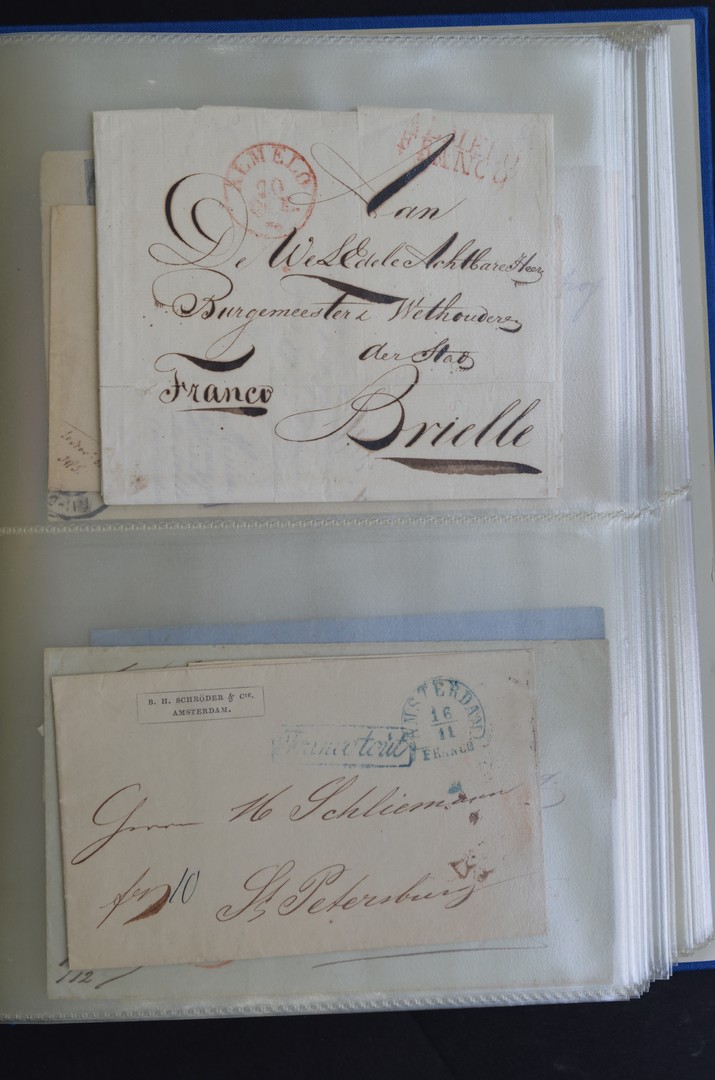 ALMELO
20
ALMELO
FRANCO
Aan
De WelEdele Achtbare Heer
Burgemeester & Wethouders
der Stad
Franco
Brielle
B. H. SCHRÖDER & Cie.
AMSTERDAM.
AMSTERDAM
16
11
FRANCO
Franco tout
Herrn H Schliemann
fr 10
St Petersburg
112